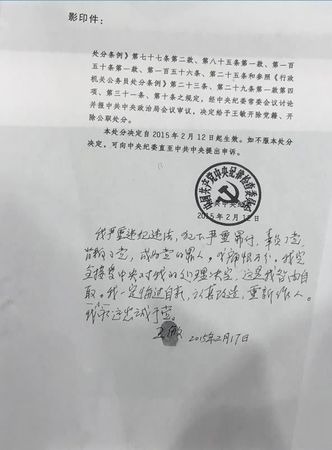 影印件：
处分条例》第七十七条第二款、第八十五条第一款、第一百
五十条第一款、第一百五十六条、第二十五条和参照《行政
机关公务员处分条例》第二十三条、第二十九条第一款第四
项、第三十一条、第十条之规定，经中央纪委常委会议讨论
并报中共中央政治局会议审议，决定给予王敏开除党籍、开
除公职处分。
本处分决定自2015年2月12日起生效。如不服本处分
决定，可向中央纪委直至中共中央提出申诉。
中国共产党中央纪律检查委员会
2015年2月12日
我严重违纪违法，犯下严重罪行，辜负了党，
背叛了党，成为党的罪人，我完
全接受中央对我的处理决定，这是我咎由自
取。我一定悔过自新，认真改造，重新作人。
我永远忠诚于党。
王敏 2015年2月17日